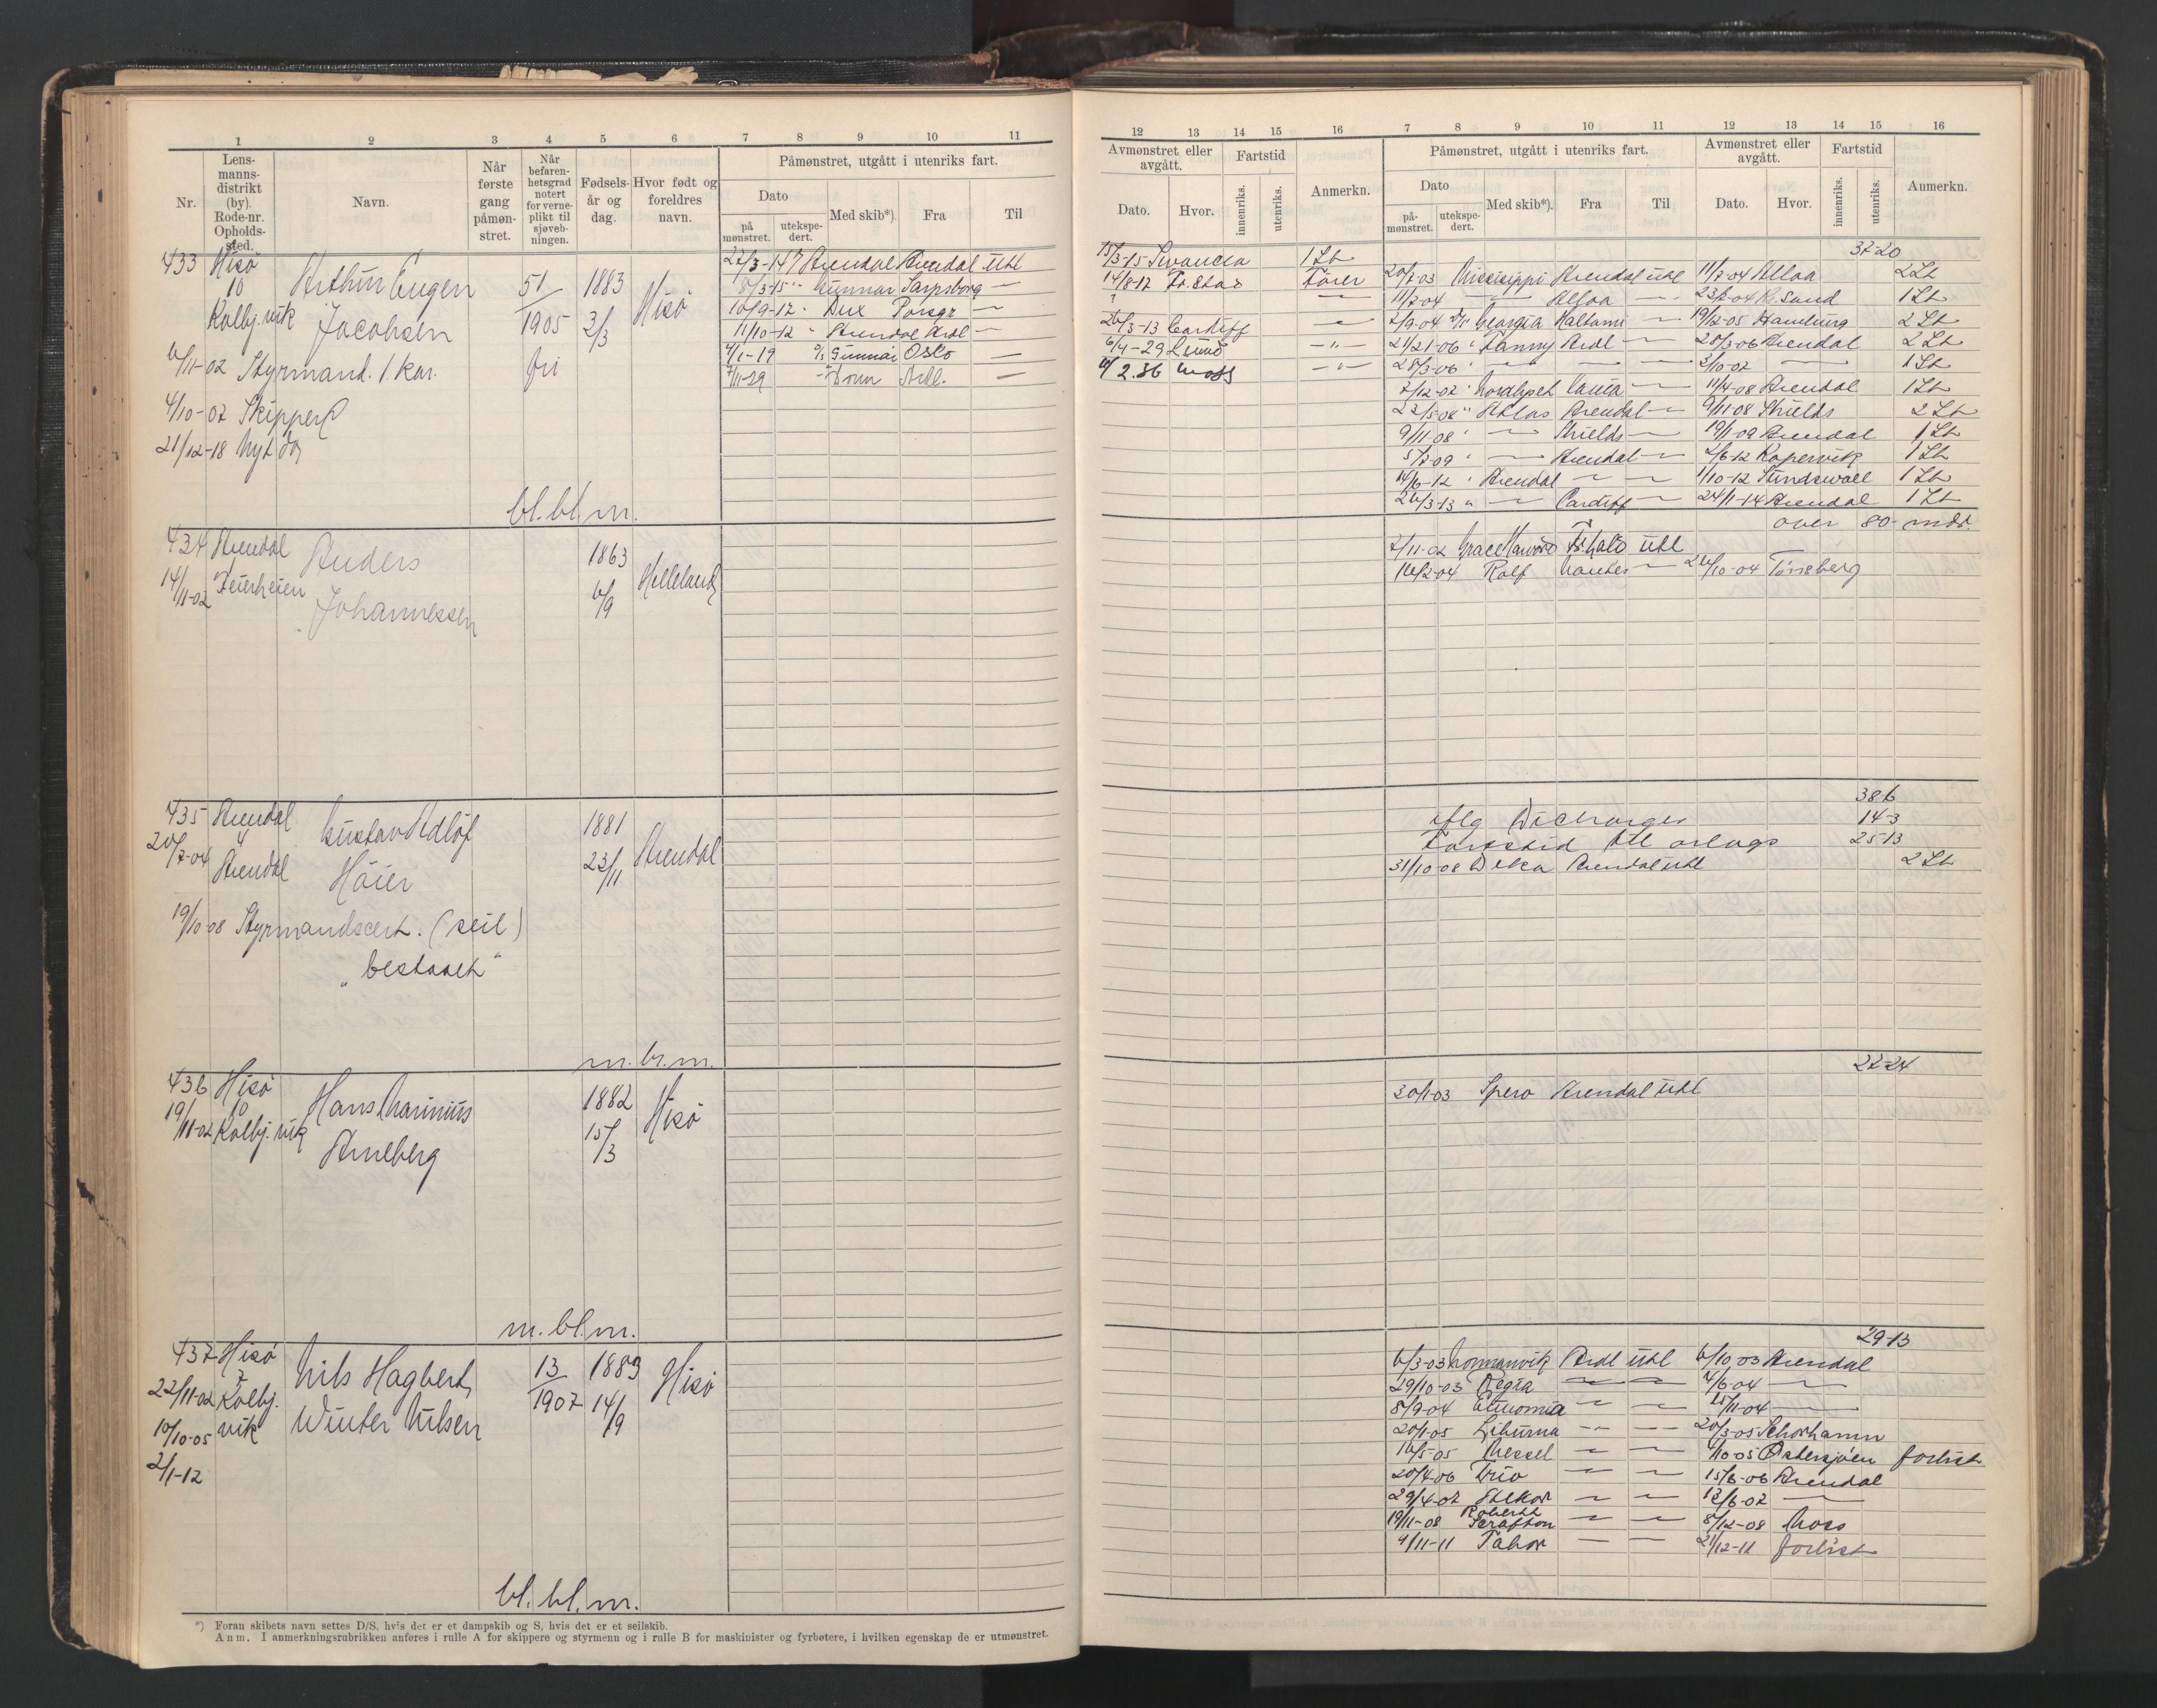 1 2 3 4 5 6 7 8 9 10 11
Nr.
Lens-
manns-
distrikt
(by).
Rode-nr.
Opholds-
sted.
Navn.
Når
første
gang
påmøn-
stret.
Når
befaren-
hetsgrad
notert
for verne-
plikt til
sjøveb-
ningen.
Fødsels-
år og
dag.
Hvor født og
foreldres
navn.
Påmønstret, utgått i utenriks fart.
Dato
på
mønstret.
utekspe-
dert.
Med skib*).
Fra
Til
433 Hisö
10
Kolbj.vik
Arthur Eugen
Jacobsen
51
1905
fri
1883
3/3
Hisö
6/11-02 Styrmand. 1 kar.
4/10-07 Skipper
21/12-18 Nyt
bl. bl. m.
Arendal Arendal utl
8/3-15 " Gunnar Sarpsborg —
10/9-17 " Dux Porsgr —
11/10-12 " Arendal Ardl —
4/1-19 Gunnar Oslo —
7/11-29 Ardl. —
434 Arendal
14/11-02
Anders
Johannessen
1863
6/9
Helleland
435 Arendal
4
20/7-04
Arendal
Gustav Adlöf
Höier
1881
23/11
Arendal
19/10-08 Styrmandscert. (seil)
„bestaaet“
m. bl. m.
436 Hisö
10
19/11-02 Kolbj.vik
Hans Marinius
Arneberg
1882
15/3
Hisö
m. bl. m.
437 Hisö
7
22/11-02 Kolbj.
10/10-05 vik
2/1-12
Nils Hagbert
Winter Nilsen
13
1907
1883
14/9
Hisö
bl. bl. m.
*) Foran skibets navn settes D/S, hvis det er et dampskib og S, hvis det er et seilskib.
Anm. I anmerkningsrubrikken anføres i rulle A for skippere og styrmenn og i rulle B for maskinister og fyrbøtere, i hvilken egenskap de er utmønstret.
12 13 14 15 16 7 8 9 10 11 12 13 14 15 16
Avmønstret eller
avgått.
Dato. Hvor.
Fartstid
innenriks.
utenriks.
Anmerkn.
Påmønstret, utgått i utenriks fart.
Dato
på-
mønstret.
utekspe-
dert.
Med skib*).
Fra
Til
Avmønstret eller
avgått.
Dato. Hvor.
Fartstid
innenriks.
utenriks.
Anmerkn.
15/3-15 Swansea 1 St
14/8-17 Fr.stad Förer
26/3-13 Cardiff —
6/4-29 Lund —"—
2.36 Moss —"—
37-20
20/7-03 Missisippi Arendal utl 11/7-04 Alloa 2 St
11/7-04 — Alloa — 23/7-04 Kr.sand 1 St
2/9-04 Georgia — 19/12-05 Hamburg 2 St
Fanny Ardl — 28/3-06 Arendal 2 St
28/3-06 — — — 3/10-07 — 1 St
7/12-07 11/4-08 Arendal 1 St
23/5-08 " Atlas Arendal — 9/11-08 Shields 2 St
9/11-08 " — Shields — 19/1-09 Arendal 1 St
5/7-09 " — Arendal — 2/6-12 Kopervik 1 St
14/6-12 " Arendal — — 1/10-12 Sundswall 1 St
26/3-13 " — Cardiff — 24/1-14 Arendal 1 St
over 80- mdr.
2/11-02 Grace Harwood Fr.hald utl
16/2-04 Rolf — 26/10-04 Tönsberg
38.6
14-3
Fartstid til orlogs 25-13
31/10-08 Arendal utl 2 St
22-24
20/1-03 Spero Arendal utl
29-13
6/3-03 Ardl utl 6/10,03 Arendal
29/10-03 Regia — — 4/6-04 —
8/9-04 Eunomia — — 15/11-04 —
20/1-05 Liburna — — 20/3-05
16/5-05 — — 4/10-05 Östersjöen forlist
20/4-06 Trio — — 15/6-06 Arendal
29/4-07 — — 13/6-07 —
19/11-08 Robert Scrafton — — 8/12-08 Moss
4/11-11 Tabor — — 21/12-11 forlist